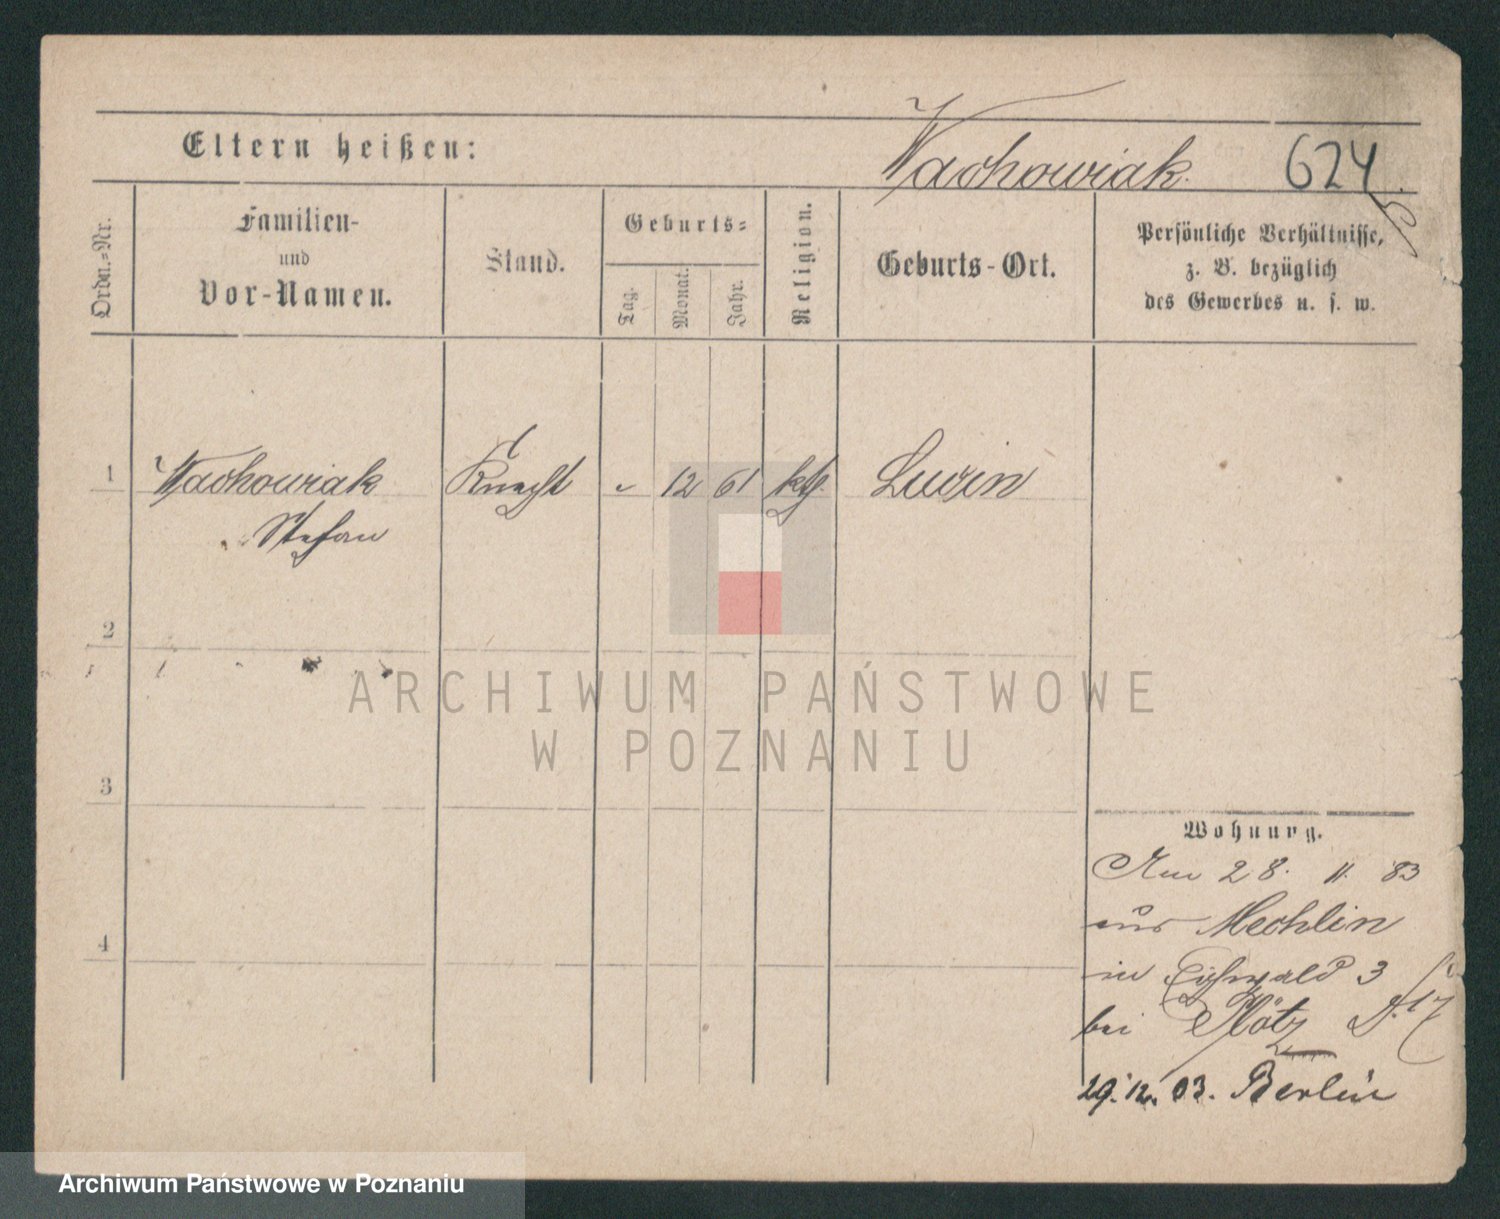 Eltern heißen:
Wachowiak. 624
Ordn.-Nr.
Familien-
und
Vor-Namen.
Stand.
Geburts-
Tag.
Monat.
Jahr.
Religion.
Geburts-Ort.
Persönliche Verhältnisse,
z. B. bezüglich
des Gewerbes u. s. w.
1 Wachowiak Knecht - 12 61 kth.
Stefan
2
3
4
Wohnung.
Am 28. 11. 83
aus Mechlin
in Eichwald 3
bei Plötz
29. 12. 03. Berlin
ARCHIWUM PAŃSTWOWE
W POZNANIU
Archiwum Państwowe w Poznaniu